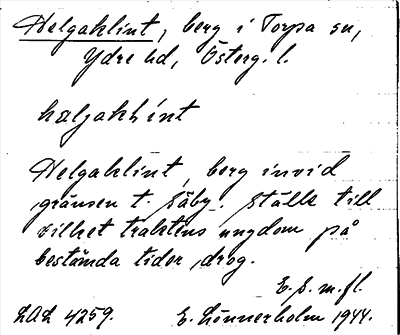 Helgaklint, berg i Torpa sn,
Ydre hd, Österg. l.
hæljaklint
Helgaklint, berg invid
gränsen t. Säby. Ställe till
vilket traktens ungdom på
bestämda tider drog.
E. S. m. fl.
LAL 4259. E. Lönnerholm 1944.